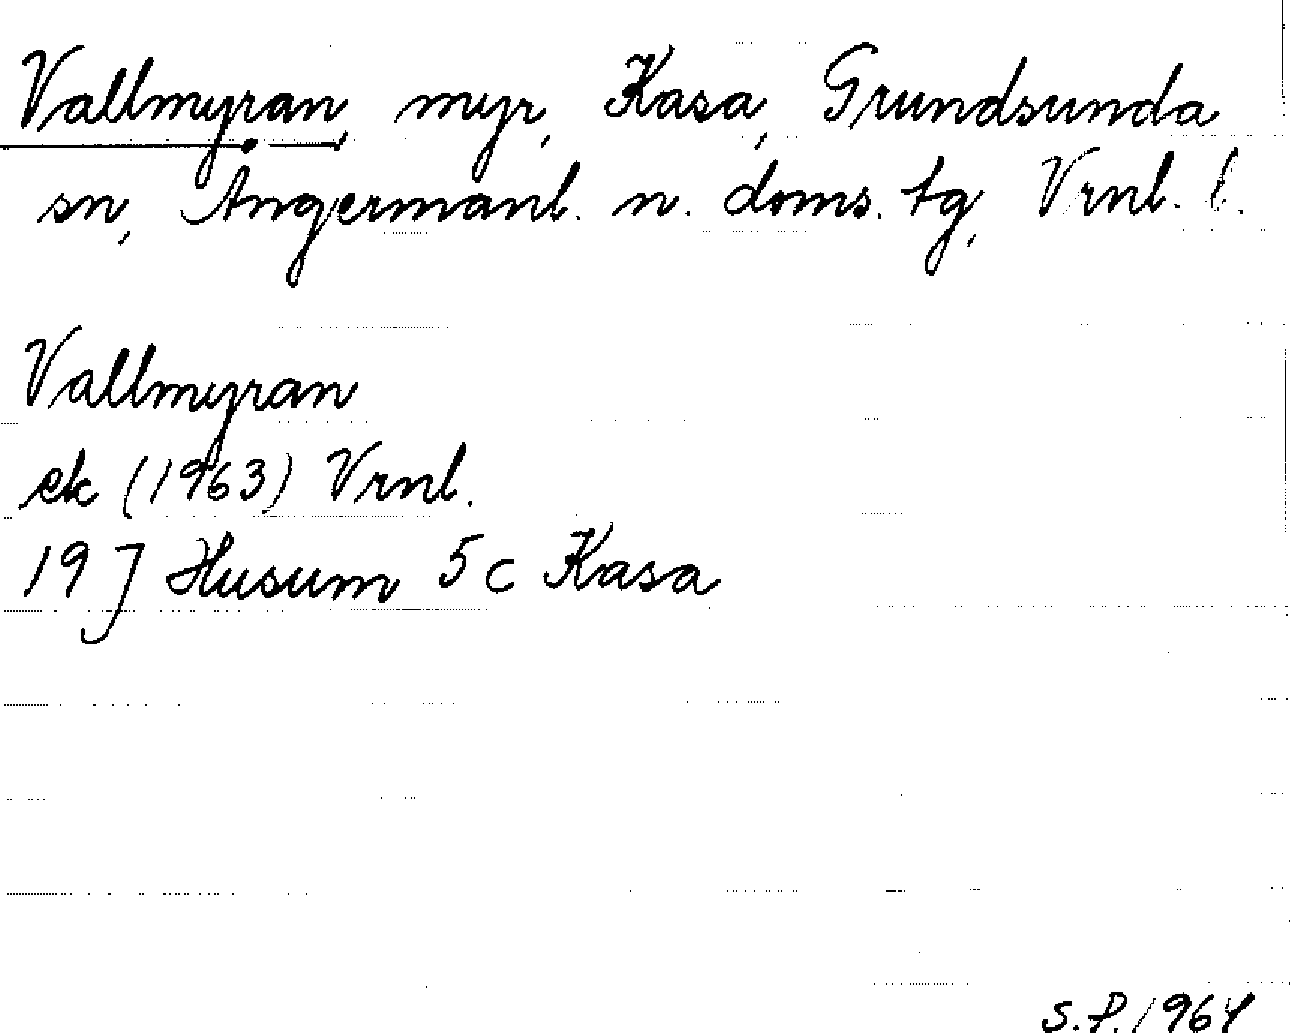 Vallmyran, myr, Kasa, Grundsunda
sn, Ångermanl. n. doms. tg, Vrnl. l.
Vallmyran
ek (1963) Vrnl.
19 J Husum 5 c Kasa
S.P. 1964